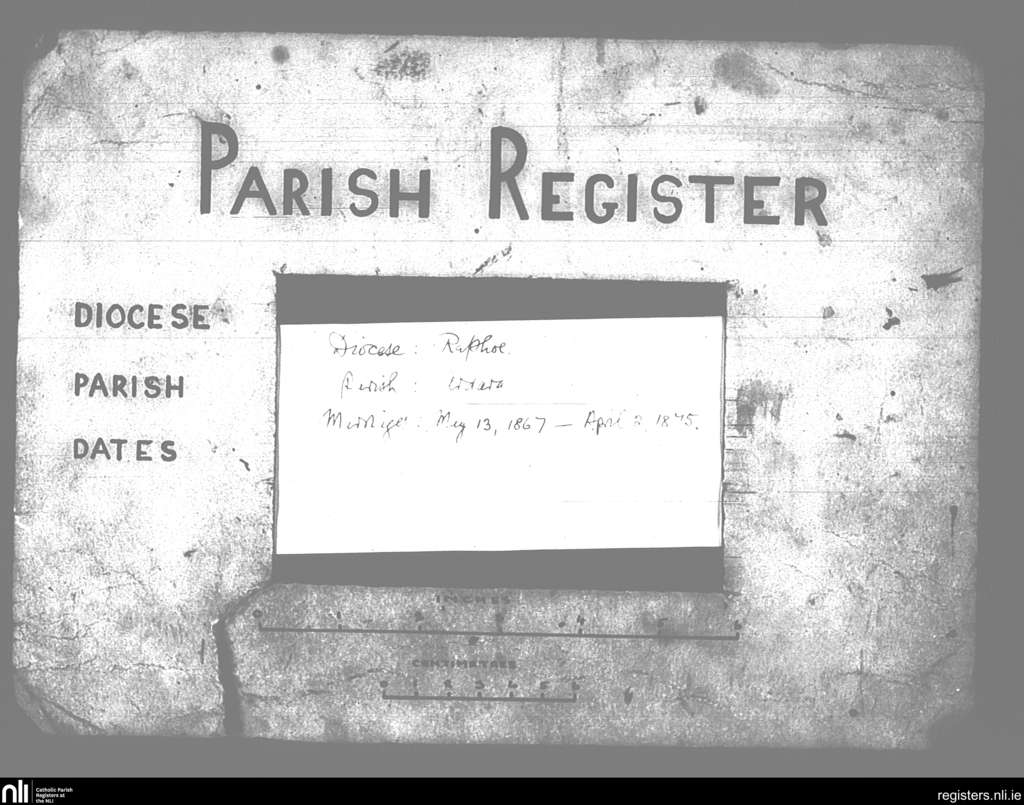 PARISH REGISTER
DIOCESE
PARISH
DATES
Diocese : Raphoe.
Parish :
Marriages : May 13, 1867 — April 3, 1875.
INCHES
CENTIMETRES
nli
Catholic Parish
Registers at
the NLI
registers.nli.ie